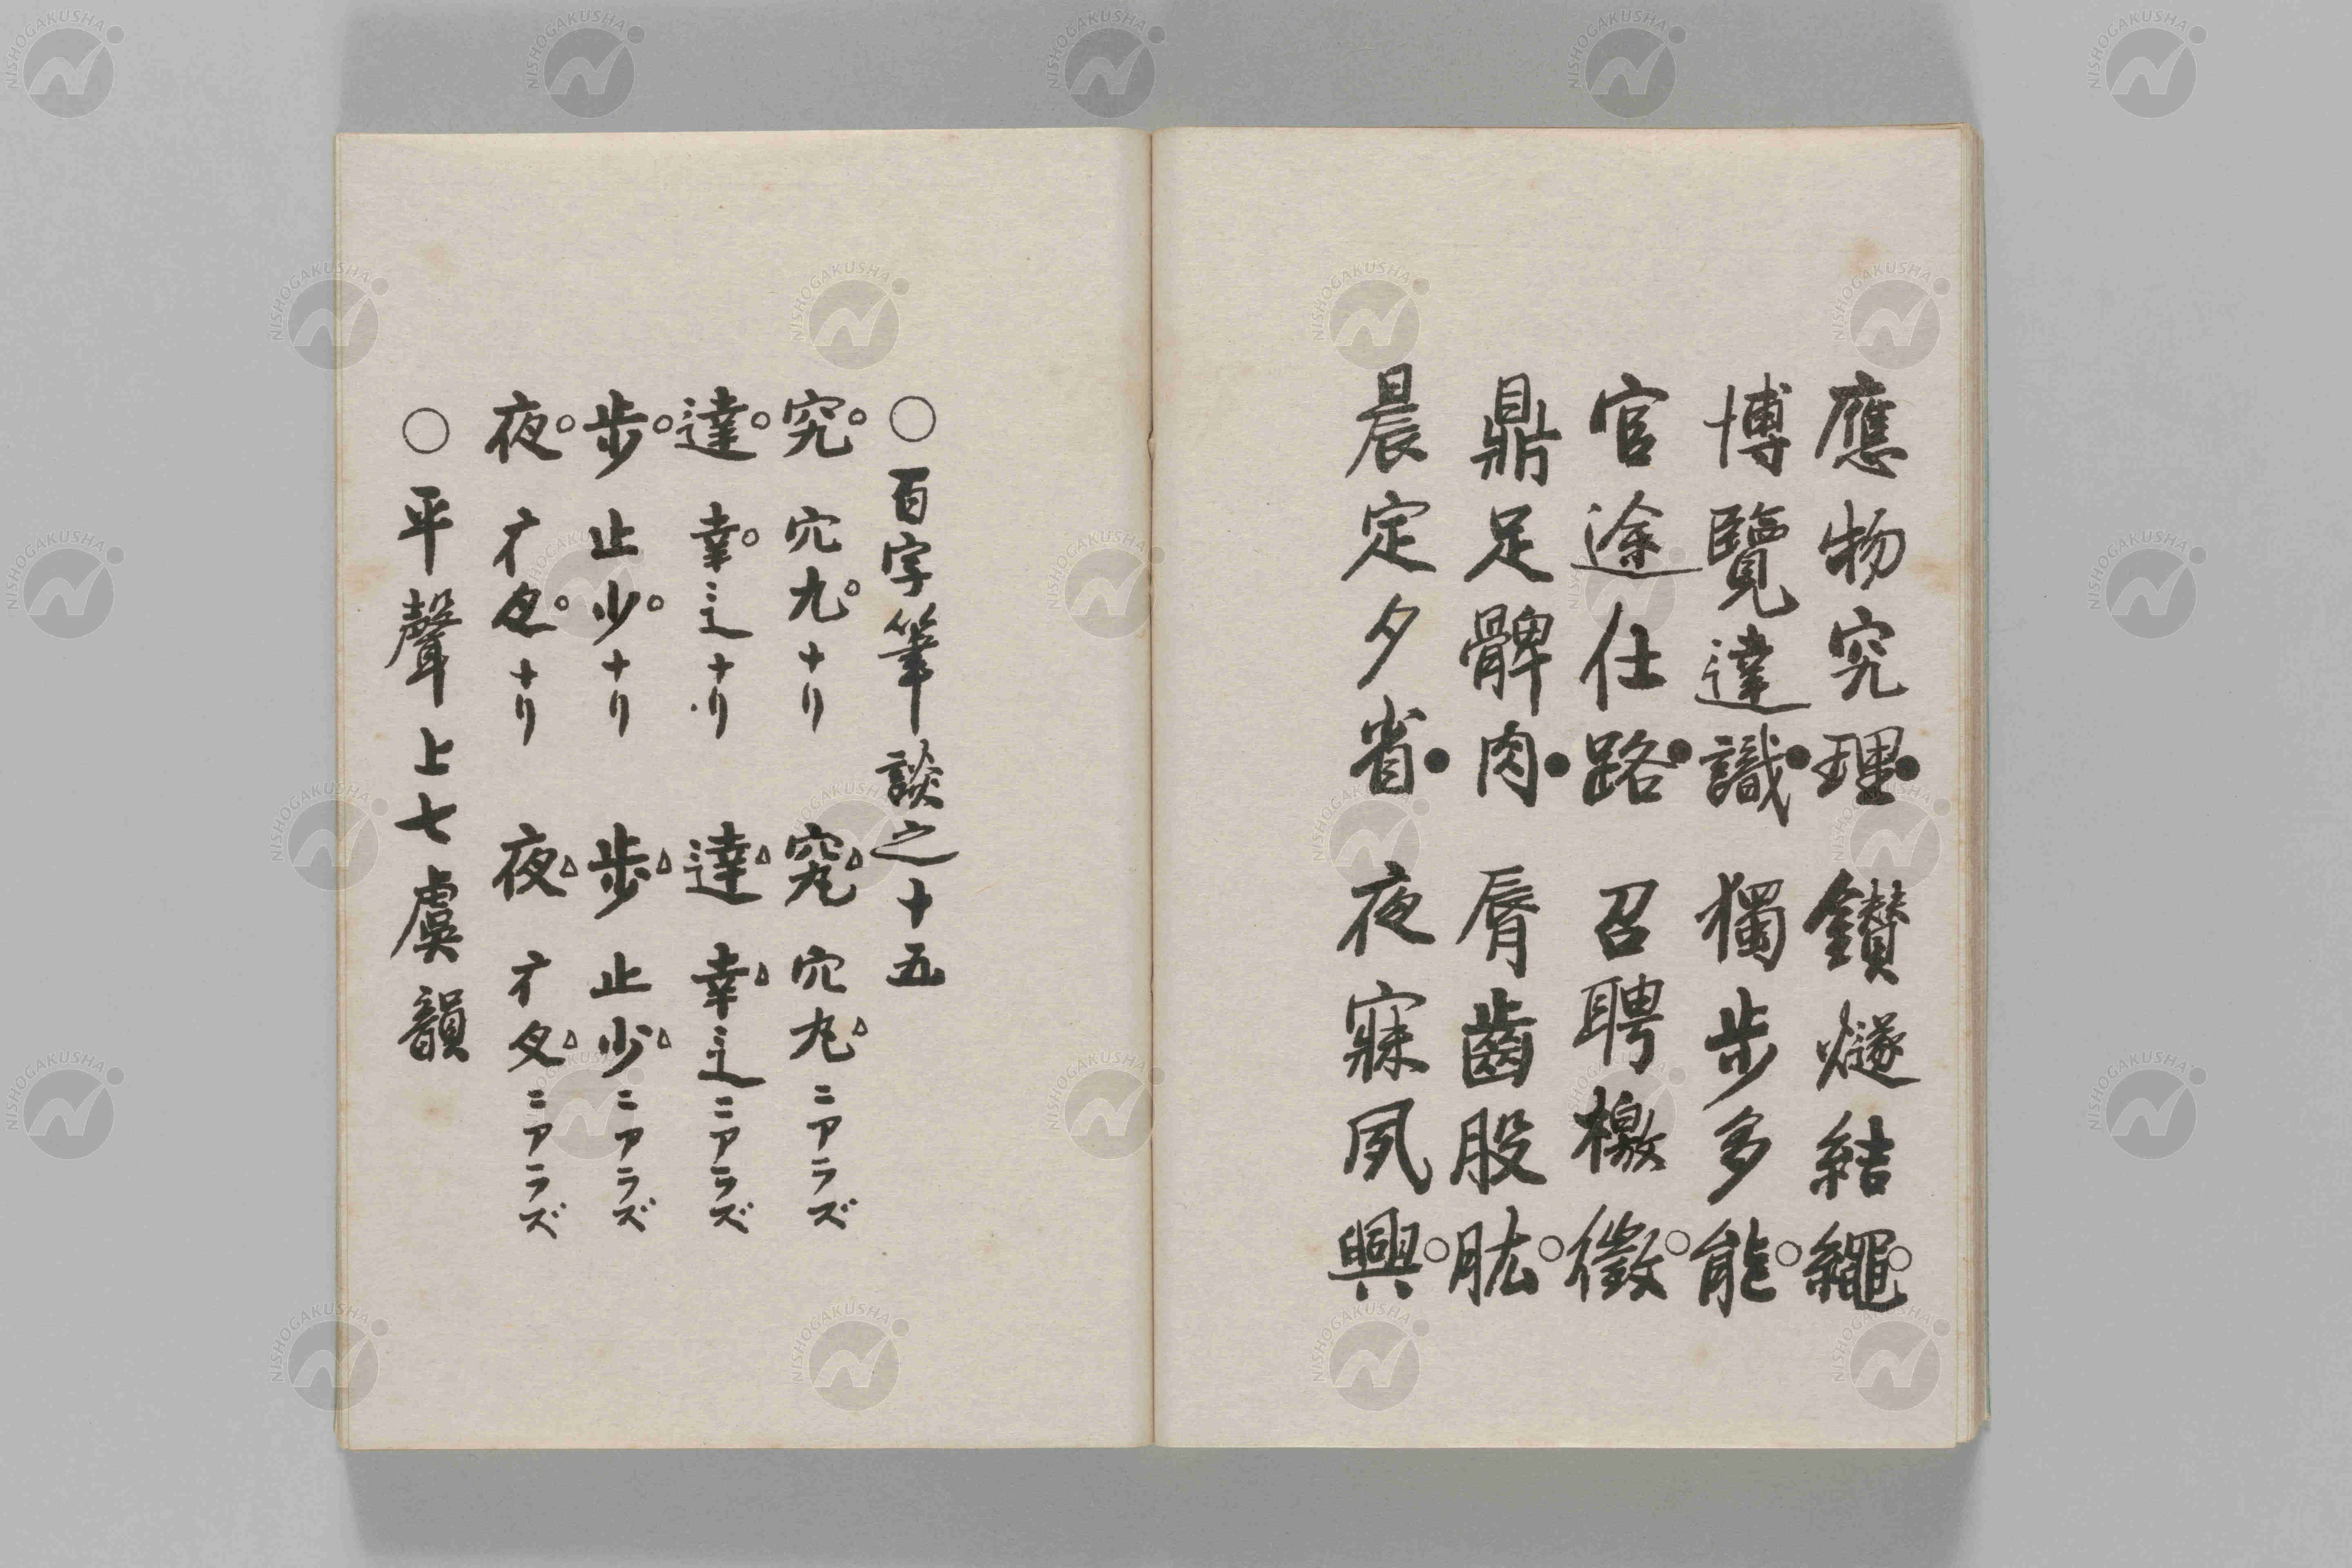 應物究理●鑚燧結繩○
博覽達識●獨步多能○
官途仕路●召聘檄徵○
鼎足髀肉●脣齒股肱○
晨定夕省●夜寐夙興○
○百字筆談之十五
究○穴九○ナリ 究△穴丸△ニアラズ
達○幸○辶ナリ 達△幸△辶ニアラズ
步○止少○ナリ 步△止少△ニアラズ
夜○ナリ 夜△ニアラズ
○平聲上七虞韻
NISHOGAKUSHA